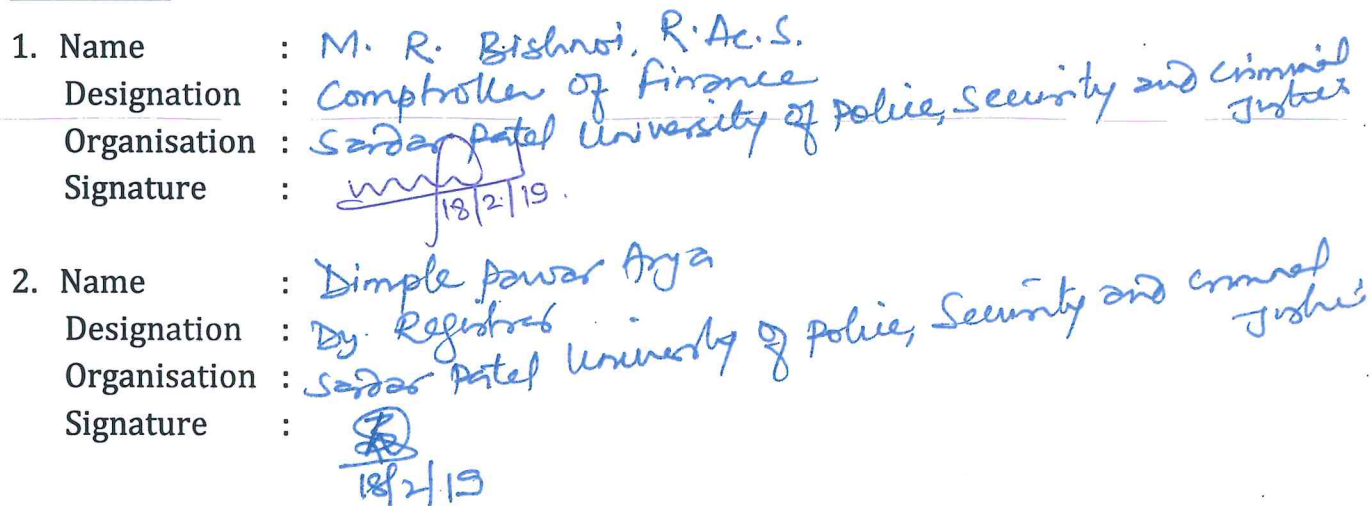 1. Name : M. R. Bishnoi, R.Ac.S.
Designation : Comptroller of Finance
Organisation : Sardar Patel University of Police, Security and Criminal Justice
Signature :
18/2/19.
2. Name : Dimple Pawar Arya
Designation : Dy. Registrar
Organisation : Sardar Patel University of Police, Security and Criminal Justice
Signature :
18/2/19